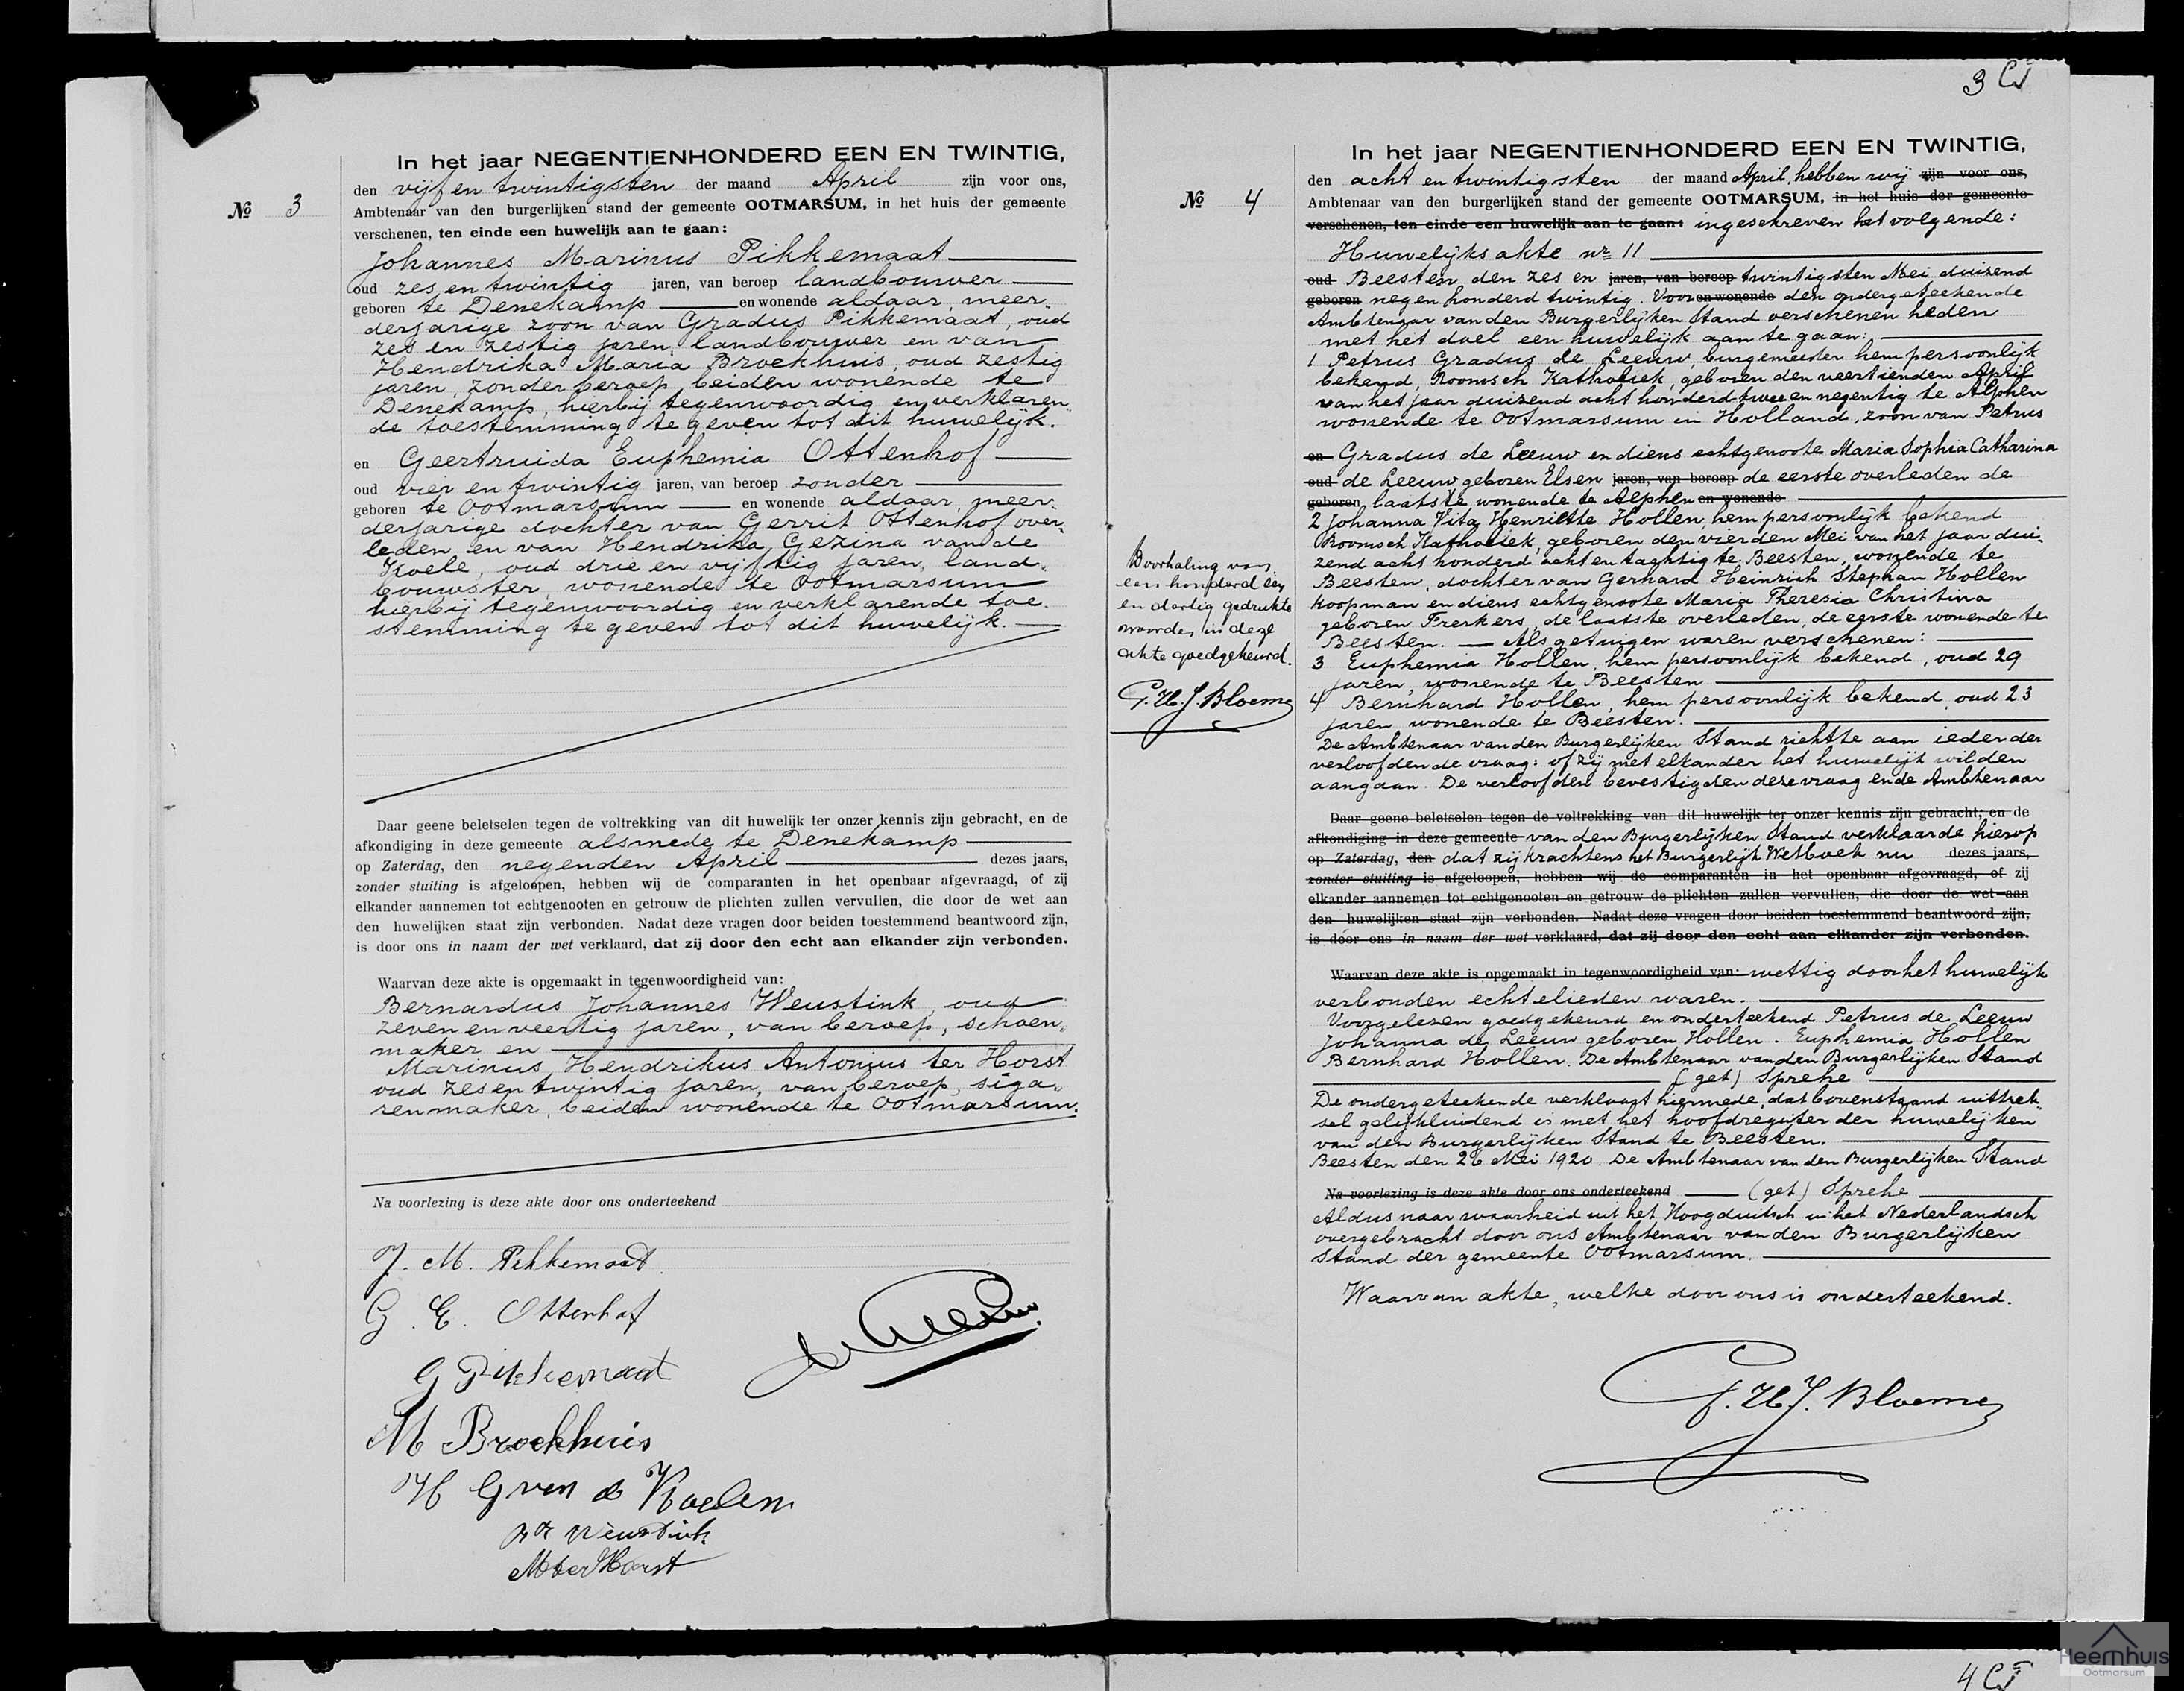 In het jaar NEGENTIENHONDERD EEN EN TWINTIG,
den vijf en twintigsten der maand April zijn voor ons,
№ 3
Ambtenaar van den burgerlijken stand der gemeente OOTMARSUM, in het huis der gemeente
verschenen, ten einde een huwelijk aan te gaan:
Johannes Marinus Pikkemaat
oud zes en twintig jaren, van beroep landbouwer
geboren te Denekamp en wonende aldaar, meer-
derjarige zoon van Gradus Pikkemaat, oud
zes en zestig jaren, landbouwer en van
Hendrika Maria Broekhuis, oud zestig
jaren, zonder beroep, beiden wonende te
Denekamp, hierbij tegenwoordig en verklaren-
de toestemming te geven tot dit huwelijk.
en Geertruida Euphemia Ottenhof
oud vier en twintig jaren, van beroep zonder
geboren te Ootmarsum en wonende aldaar, meer-
derjarige dochter van Gerrit Ottenhof over-
leden en van Hendrika Gezina van de
Koele, oud drie en vijftig jaren, land-
bouwster, wonende te Ootmarsum
hierbij tegenwoordig en verklarende toe-
stemming te geven tot dit huwelijk.
Daar geene beletselen tegen de voltrekking van dit huwelijk ter onzer kennis zijn gebracht, en de
afkondiging in deze gemeente alsmede te Denekamp
op Zaterdag, den negenden April dezes jaars,
zonder stuiting is afgeloopen, hebben wij de comparanten in het openbaar afgevraagd, of zij
elkander aannemen tot echtgenooten en getrouw de plichten zullen vervullen, die door de wet aan
den huwelijken staat zijn verbonden. Nadat deze vragen door beiden toestemmend beantwoord zijn,
is door ons in naam der wet verklaard, dat zij door den echt aan elkander zijn verbonden.
Waarvan deze akte is opgemaakt in tegenwoordigheid van:
Bernardus Johannes Weustink, oud
zeven en veertig jaren, van beroep, schoen-
maker en
Marinus Hendrikus Antonius ter Horst
oud zes en twintig jaren, van beroep, siga-
renmaker, beiden wonende te Ootmarsum.
Na voorlezing is deze akte door ons onderteekend
J. M. Pikkemaat
G. E. Ottenhof
G Pikkemaat
M Broekhuis
H G van de Koelen
Weustink
M ter Horst
3
In het jaar NEGENTIENHONDERD EEN EN TWINTIG,
den acht en twintigsten der maand April, hebben wij zijn voor ons,
№ 4
Ambtenaar van den burgerlijken stand der gemeente OOTMARSUM, in het huis der gemeente
verschenen, ten einde een huwelijk aan te gaan: ingeschreven het volgende:
Huwelijksakte nr 11
oud Beesten den zes en jaren, van beroep twintigsten Mei duizend
geboren negen honderd twintig. Voor en wonende den ondergeteekende
Ambtenaar van den Burgerlijken Stand verschenen heden
met het doel een huwelijk aan te gaan:
1 Petrus Gradus de Leeuw, burgemeester hem persoonlijk
bekend, Roomsch Katholiek, geboren den veertienden April
van het jaar duizend acht honderd twee en negentig te Alphen
wonende te Ootmarsum in Holland, zoon van Petrus
en Gradus de Leeuw en diens echtgenoote Maria Sophia Catharina
oud de Leeuw geboren Elsen jaren, van beroep de eerste overleden de
geboren laatste wonende te Alphen en wonende
2 Johanna Vita Henriette Hollen, hem persoonlijk bekend
Roomsch Katholiek, geboren den vierden Mei van het jaar dui-
zend acht honderd acht en tachtig te Beesten, wonende te
Beesten, dochter van Gerhard Heinrich Stephan Hollen
koopman en diens echtgenoote Maria Theresia Christina
geboren Frerkers, de laatste overleden, de eerste wonende te
Beesten. — Als getuigen waren verschenen:
3 Euphemia Hollen, hem persoonlijk bekend, oud 29
jaren, wonende te Beesten
4 Bernhard Hollen, hem persoonlijk bekend, oud 23
jaren wonende te Beesten.
De Ambtenaar van den Burgerlijken Stand richtte aan ieder der
verloofden de vraag: of zij met elkander het huwelijk wilden
aangaan. De verloofden bevestigden deze vraag en de Ambtenaar
Daar geene beletselen tegen de voltrekking van dit huwelijk ter onzer kennis zijn gebracht; en de
afkondiging in deze gemeente van den Burgerlijken Stand verklaarde hierop
op Zaterdag, den dat zij krachtens het Burgerlijk Wetboek nu dezes jaars,
zonder stuiting is afgeloopen, hebben wij de comparanten in het openbaar afgevraagd, of zij
elkander aannemen tot echtgenooten en getrouw de plichten zullen vervullen, die door de wet aan
den huwelijken staat zijn verbonden. Nadat deze vragen door beiden toestemmend beantwoord zijn,
is door ons in naam der wet verklaard, dat zij door den echt aan elkander zijn verbonden.
Waarvan deze akte is opgemaakt in tegenwoordigheid van: wettig door het huwelijk
verbonden echtelieden waren.
Voorgelezen goedgekeurd en onderteekend Petrus de Leeuw
Johanna de Leeuw geboren Hollen. Euphemia Hollen
Bernhard Hollen. De Ambtenaar van den Burgerlijken Stand
(get) Sprehe
De ondergeteekende verklaart hiermede, dat bovenstaand uittrek-
sel gelijkluidend is met het hoofdregister der huwelijken
van den Burgerlijken Stand te Beesten.
Beesten den 26 Mei 1920. De Ambtenaar van den Burgerlijken Stand
Na voorlezing is deze akte door ons onderteekend (get) Sprehe
Aldus naar waarheid uit het Hoogduitsch in het Nederlandsch
overgebracht door ons Ambtenaar van den Burgerlijken
Stand der gemeente Ootmarsum.
Waarvan akte, welke door ons is onderteekend.
G. H. J. Bloemen
Doorhaling van
een honderd een
en dertig gedrukte
woorden in deze
akte goedgekeurd.
G. H. J. Bloemen
4
Heemhuis
Ootmarsum